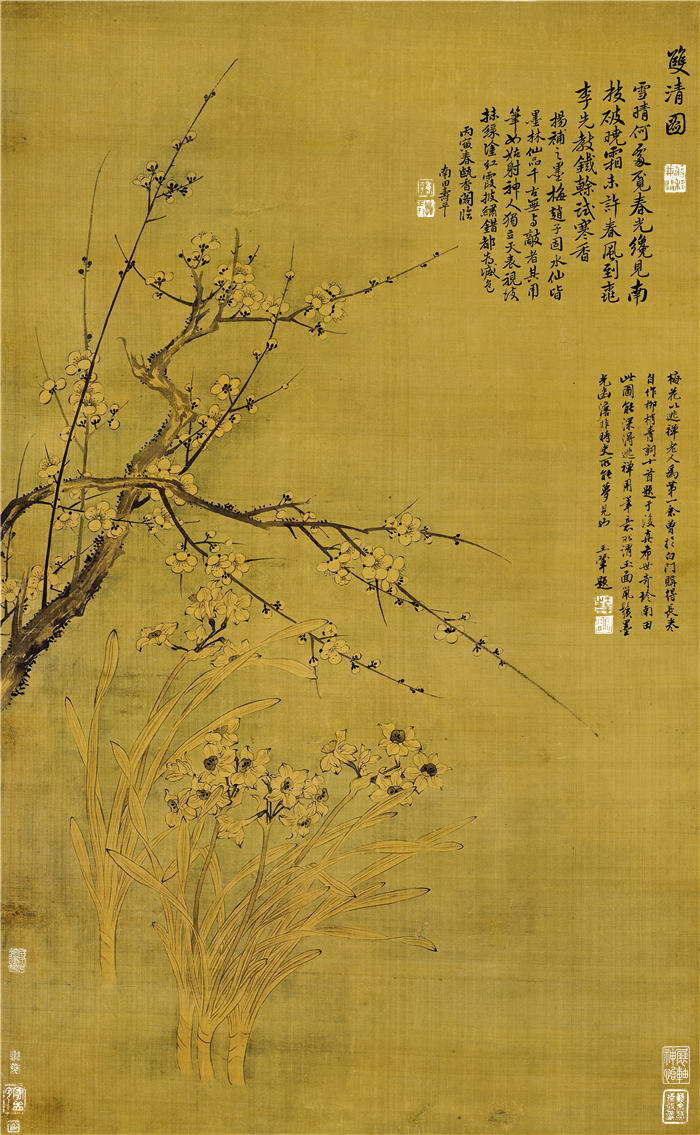 雙清圖
雪晴何處覓春光纔見南
枝破曉霜未許春風到桃
李先教鐵榦試寒香
楊補之墨梅趙子固水仙皆
墨林仙品千古無与敵者其用
筆如姑射神人獨立天表視彼
抹綠塗紅霞披繡錯都為減色
丙寅春甌香閣臨
南田壽平
梅花以逃禪老人為第一余曾於白門購得長卷
自作柳梢青詞十首題于後真希世奇珍南田
此圖能深得逃禪用筆意所謂玉面風鬟墨
光幽澹非時史所能夢見也 王翬題